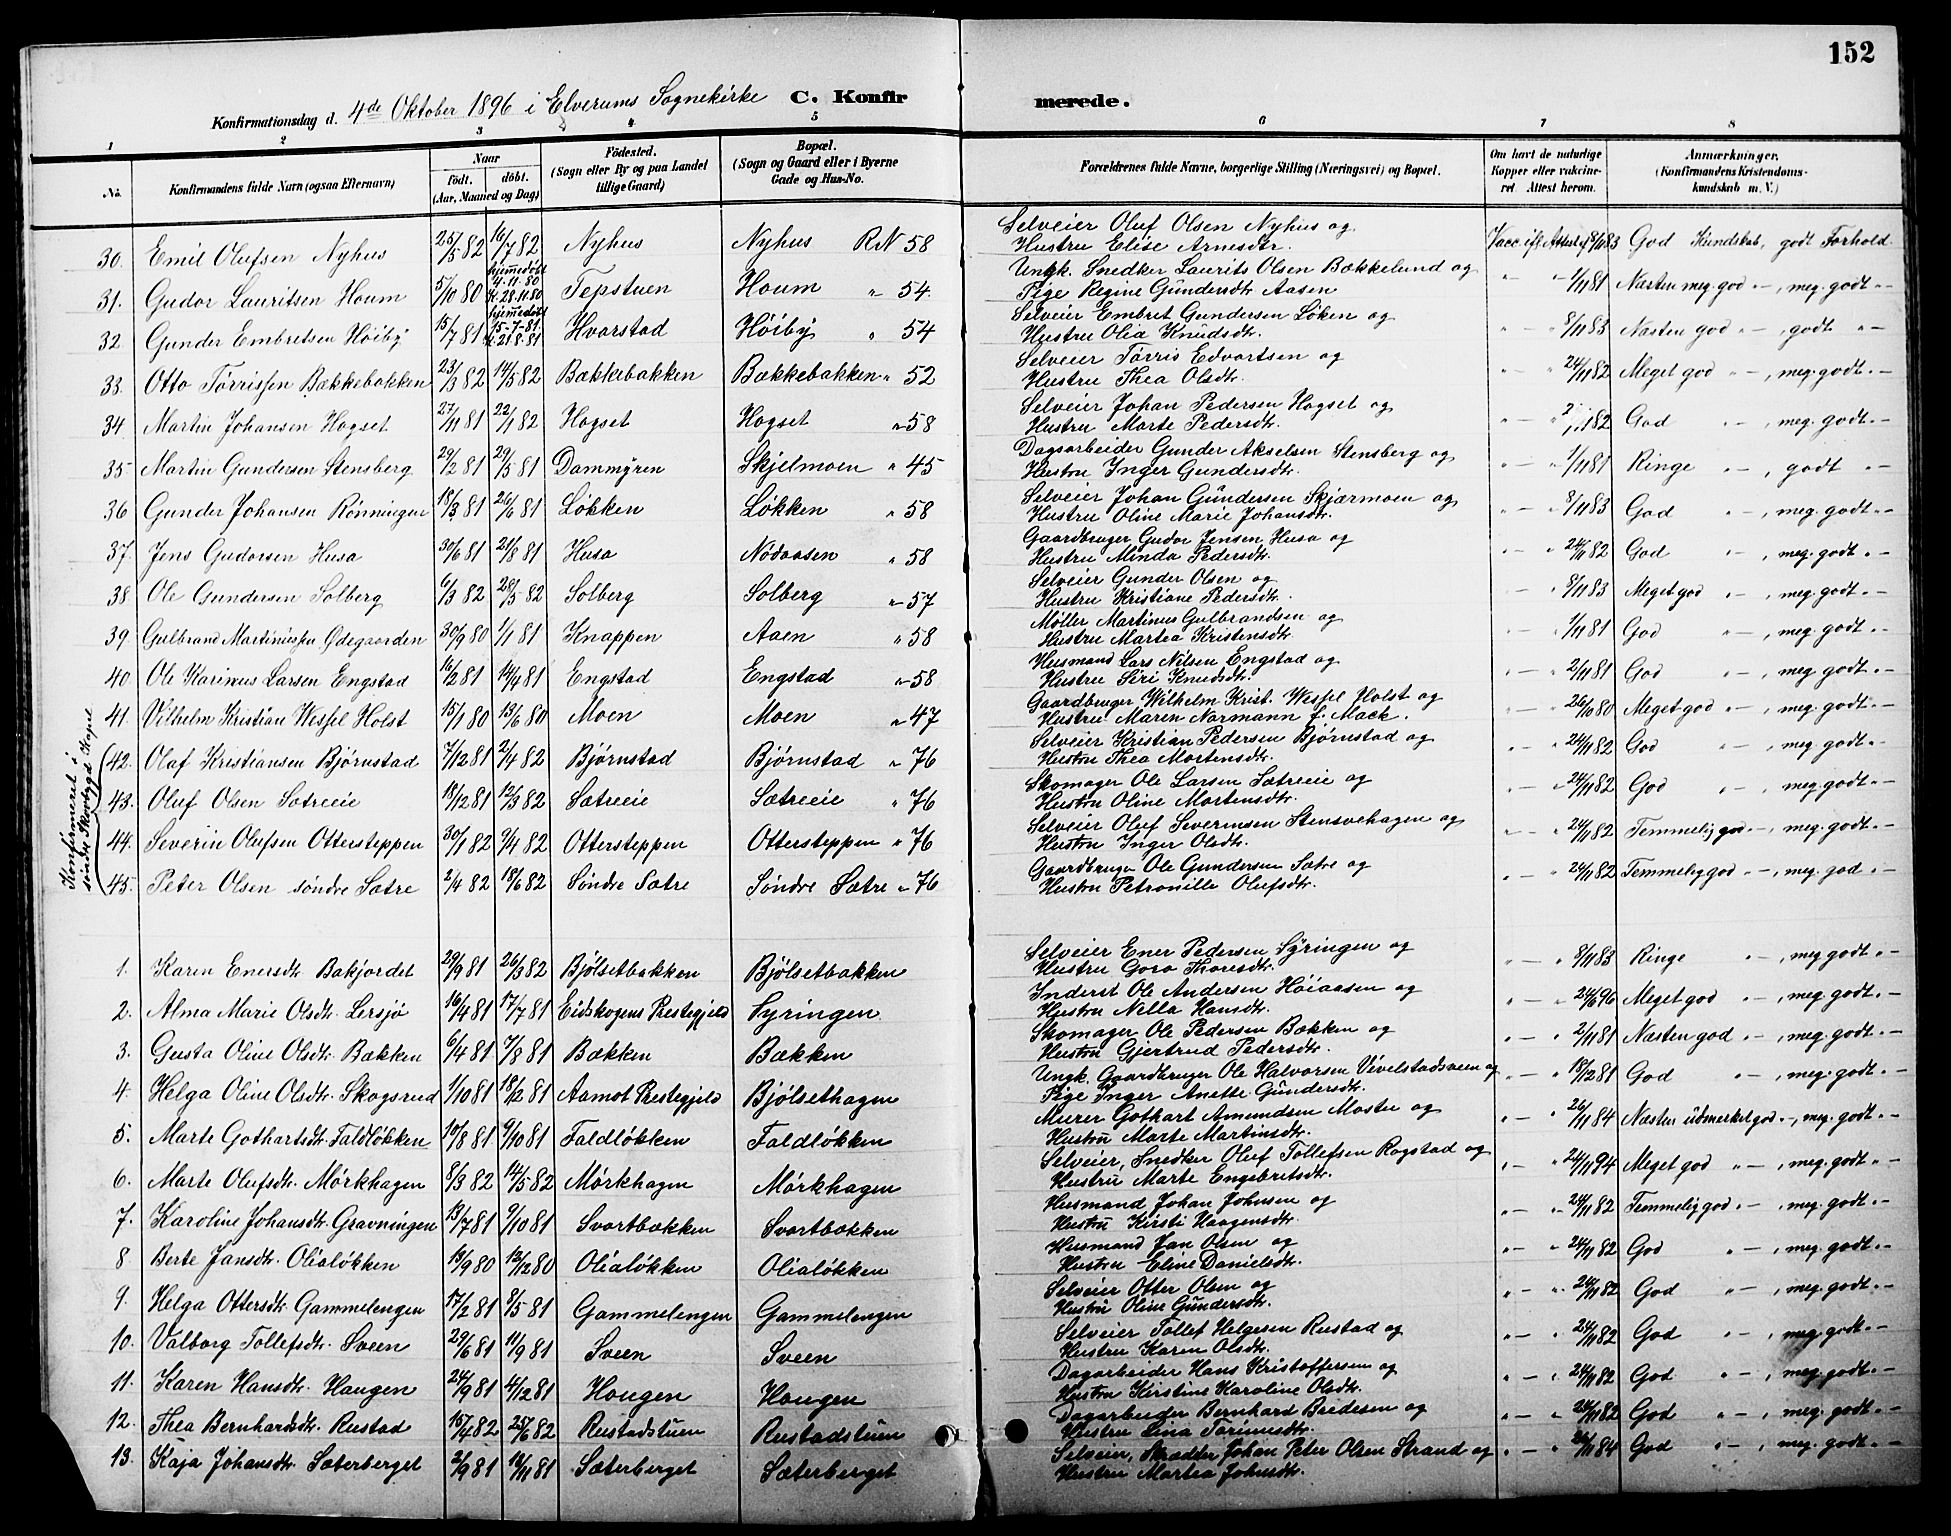 152
Konfirmationsdag d. 4de Oktober 1896 i Elverums Sognekirke C. Konfirmerede.
1 2 3 4 5 6 7 8
No. Konfirmandens fulde Navn (ogsaa Efternavn) Naar født. døbt. (Aar, Maaned og Dag) Fødested. (Sogn eller By og paa Landet tillige Gaard) Bopæl. (Sogn og Gaard eller i Byerne Gade og Hus-No. Forældrenes fulde Navne, borgerlige Stilling (Næringsvei) og Bopæl. Om havt de naturlige Kopper eller vakcineret. Attest herom. Anmærkninger. (Konfirmandens Kristendomskundskab m. V.)
30. Emil Olufsen Nyhus 25/5 82 16/7 82 Nyhus Nyhus RN 58 Selveier Oluf Olsen Nyhus og Hustru Elise Arnesdtr. Vacc. ifl. Attest af 8/11 83 God Kundskab, godt Forhold.
31. Gudor Lauritsen Houm 5/10 80 hjemedøbt 4.11.80 K. 28.11.80 Tepstuen Houm " 54. Ungk. Snedker Laurits Olsen Bækkelund og Pige Regine Gundersdtr. Aasen " — " 1/11 81 Næsten meg. god " —, meg. godt " —
32. Gunder Embretsen Høiby 15/7 81 hjemedøbt 15-7-81. K. 21.8.81 Hvarstad Høiby " 54 Selveier Embret Gundersen Løken og Hustru Olia Knudsdtr. " — " 8/11 83 Næsten god " —, godt " —
33. Otto Tørrissen Bækkebakken 23/3 82 14/5 82 Bækkebakken Bækkebakken " 52 Selveier Tørris Edvartsen og Hustru Thea Olsdtr. " — " 24/11 82 Meget god " —, meg. godt " —
34. Martin Johansen Hagset 27/11 81 22/1 82 Hagset Hagset " 58 Selveier Johan Pedersen Hagset og Hustru Marte Pedersdtr. " — " 82 God " —, meg. godt " —
35. Martin Gundersen Stensberg 29/2 81 29/5 81 Dammyren Skjelmoen " 45 Dagsarbeider Gunder Akselsen Stensberg og Hustru Inger Gundersdtr. " — " 1/11 81 Ringe " —, godt " —
36 Gunder Johansen Rønningen 18/3 81 26/6 81 Løkken Løkken " 58 Selveier Johan Gundersen Skjærmoen og Hustru Oline Marie Johansdtr. " — " 8/11 83 God " —, meg. godt " —
37. Jens Gudorsen Husa 30/6 81 21/8 81 Husa Nødaasen " 58 Gaardbruger Gudor Jensen Husa og Hustru Minda Pedersdtr. " — " 24/11 82 God " —, meg. godt " —
38 Ole Gundersen Solberg 6/3 82 28/5 82 Solberg Solberg " 57 Selveier Gunder Olsen og Hustru Kristiane Pedersdtr. " — " 8/11 83 Meget god " —, meg. godt " —
39 Gulbrand Martinussen Ødegaarden 30/9 80 1/1 81 Knappen Aaen " 58 Møller Martinus Gulbrandsen og Hustru Martea Kristensdtr. " — " 1/11 81 God " —, meg. godt " —
40. Ole Karinus Larsen Engstad 16/2 81 14/4 81 Engstad Engstad " 58 Husmand Lars Nilsen Engstad og Hustru Siri Knudsdtr. " — " 2/11 81 God " —, meg. godt " —
41. Vilhelm Kristian Wessel Holst 15/1 80 13/6 80 Moen Moen " 47 Gaardbruger Wilhelm Krist. Wessel Holst og Hustru Maren Normann f. Mack. " — " 26/10 80 Meget god " —, meg. godt " —
Konfirmeret i søndre Skovbygd Kapel
42. Olaf Kristiansen Bjørnstad 7/12 81 2/4 82 Bjørnstad Bjørnstad " 76 Selveier Kristian Pedersen Bjørnstad og Hustru Thea Mortensdtr. " — " 24/11 82 God " —, meg. godt " —
43. Oluf Olsen Sætreeie 18/12 81 12/3 82 Sætreeie Sætreeie " 76 Skomager Ole Larsen Sætreeie og Hustru Oline Mortensdtr. " — " 24/11 82 God " —, meg. godt " —
44. Severin Olufsen Ottersteppen 30/1 82 9/4 82 Ottersteppen Ottersteppen " 76 Selveier Oluf Severinsen Stensvehagen og Hustru Inger Olsdtr. " — " 24/11 82 Temmelig god " —, meg. godt " —
45. Peter Olsen søndre Sætre 2/4 82 18/6 82 Søndre Sætre Søndre Sætre " 76 Gaardbruger Ole Gundersen Sætre og Hustru Petronille Olufsdtr. " — " 24/11 82 Temmelig god " —, meg. god " —
1. Karen Enersdtr. Bakjordet 29/9 81 26/3 82 Bjølsetbakken Bjølsetbakken Selveier Ener Pedersen Syringen og Hustru Goro Thoresdtr. " — " 8/11 83 Ringe " —, meg godt " —
2. Alma Marie Olsdtr. Lersjø 16/4 81 17/7 81 Eidskogens Prestegjeld Syringen. Inderst Ole Andersen Høiaasen og Hustru Nella Hansdtr. " — " 24/6 96 Meget god " —, meg. godt " —
3. Gusta Oline Olsdtr. Bækken 6/4 81 7/8 81 Bækken Bækken Skomager Ole Pedersen Bækken og Hustru Gjertrud Pedersdtr. " — " 2/11 81 Næsten god " —, meg. godt " —
4. Helga Oline Olsdtr. Skogsrud 1/10 81 18/2 81 Aamot Prestegjeld Bjølsethagen Ungk. Gaardbruger Ole Halvorsen Vivelstadsveen og Pige Inger Anette Gundersdtr. " — " 18/12 81 God " —, meg. godt " —
5. Marte Gothartsdtr. Faldløkken 10/8 81 9/10 81 Faldløkken Faldløkken Murer Gothart Amundsen Moste og Hustru Marte Martinsdtr. " — " 26/11 84 Næsten udmerket god " —, meg. godt " —
6. Marte Olufsdtr. Mørkhagen 8/3 82 14/5 82 Mørkhagen Mørkhagen Selveier, Snedker Oluf Tollefsen Rogstad og Hustru Marte Engebretsdtr. " — " 24/11 94 Meget god " —, meg. godt " —
7. Karoline Johansdtr. Gravningen 13/7 81 9/10 81 Svartbækken Svartbækken Husmand Johan Johnsen og Hustru Kirsti Haagensdtr. " — " 24/11 82 Temmelig god " —, meg. godt " —
8 Berte Jansdtr. Olialøkken 19/9 80 12/12 80 Olialøkken Olialøkken Husmand Jan Olsen og Hustru Eline Danielsdtr. " — " 24/11 82 God " —, meg. godt " —
9. Helga Ottersdtr. Gammelengen 17/2 81 8/5 81 Gammelengen Gammelengen Selveier Otter Olsen og Hustru Oline Gundersdtr. " — " 24/11 82 God " —, meg. godt " —
10. Valborg Tollefsdtr. Sveen 29/6 81 11/9 81 Sveen Sveen Selveier Tollef Helgesen Rustad og Hustru Karen Olsdtr. " — " 24/11 82 God " —, meg. godt " —
11. Karen Hansdtr. Haugen 24/9 81 4/12 81 Haugen Haugen Dagarbeider Hans Kristoffersen og Hustru Kirstine Karoline Olsdtr. " — " 24/11 82 God " —, meg. godt " —
12. Thea Bernhardsdtr. Rustad 15/4 82 25/6 82 Rustadstuen Rustadstuen Dagarbeider Bernhard Bredesen og Hustru Lina Torinusdtr. " — " 24/11 82 God " —, meg. godt " —
13. Kaja Johansdtr. Sæterberget 2/9 81 /11 81 Sæterberget Sæterberget Selveier, Skrædder Johan Peter Olsen Strand og Hustru Martea Johnsdtr. " — " 26/11 84 God " —, meg. godt " —